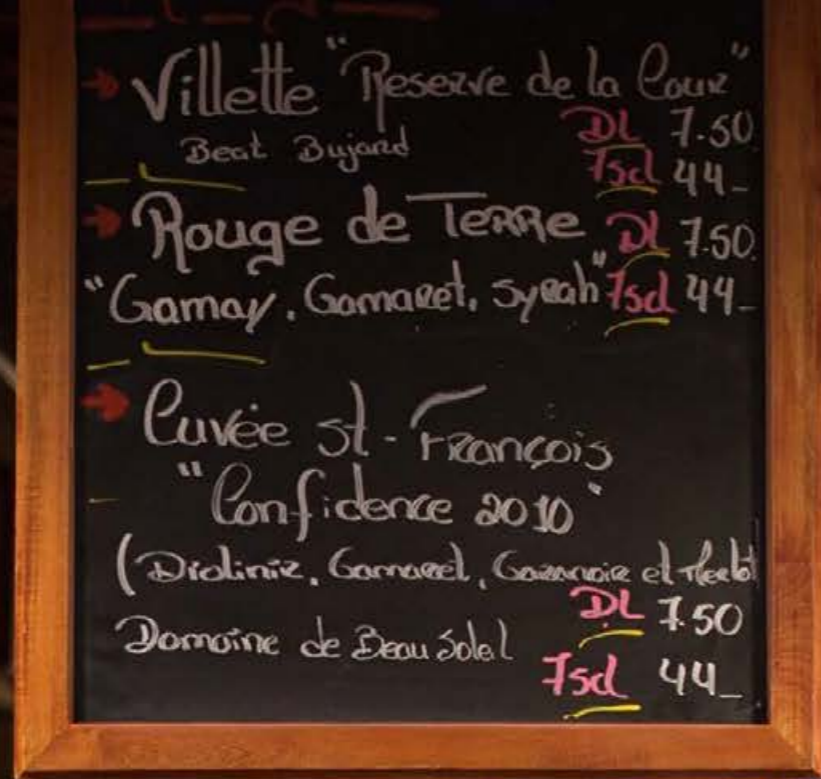 Villette "Reserve de la Cour"
Beat Bujard DL 7.50
75cl 44_
Rouge de Terre DL 7.50
"Gamay, Gamaret, Syrah" 75cl 44_
Cuvée St-François
"Confidence 2010"
(Diolinir, Gamaret, Garanoir et Merlot
DL 7.50
Domaine de Beau Solel
75cl 44_